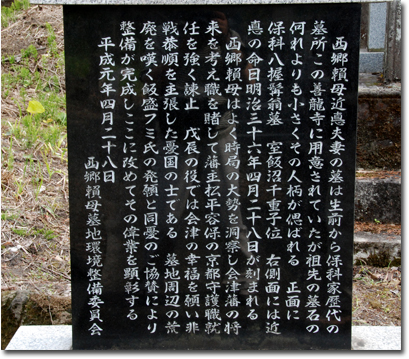 西郷頼母近悳夫妻の墓は生前から保科家歴代の
墓所この善龍寺に用意されていたが祖先の墓石の
何れよりも小さくその人柄が偲ばれる 正面に
保科八握髯翁墓 室飯沼千重子位 右側面には近
悳の命日明治三十六年四月二十八日が刻まれる
西郷頼母はよく時局の大勢を洞察し会津藩の将
来を考え職を賭して藩主松平容保の京都守護職就
任を強く諫止 戊辰の役では会津の幸福を願い非
戦恭順を主張した憂国の士である 墓地周辺の荒
廃を嘆く飯盛フミ氏の発願と同憂のご協賛により
整備が完成しここに改めてその偉業を顕彰する
平成元年四月二十八日
西郷頼母墓地環境整備委員会